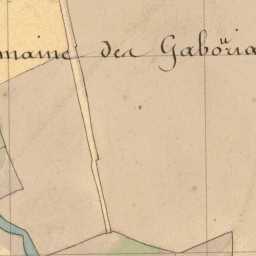 maine des Gaböria